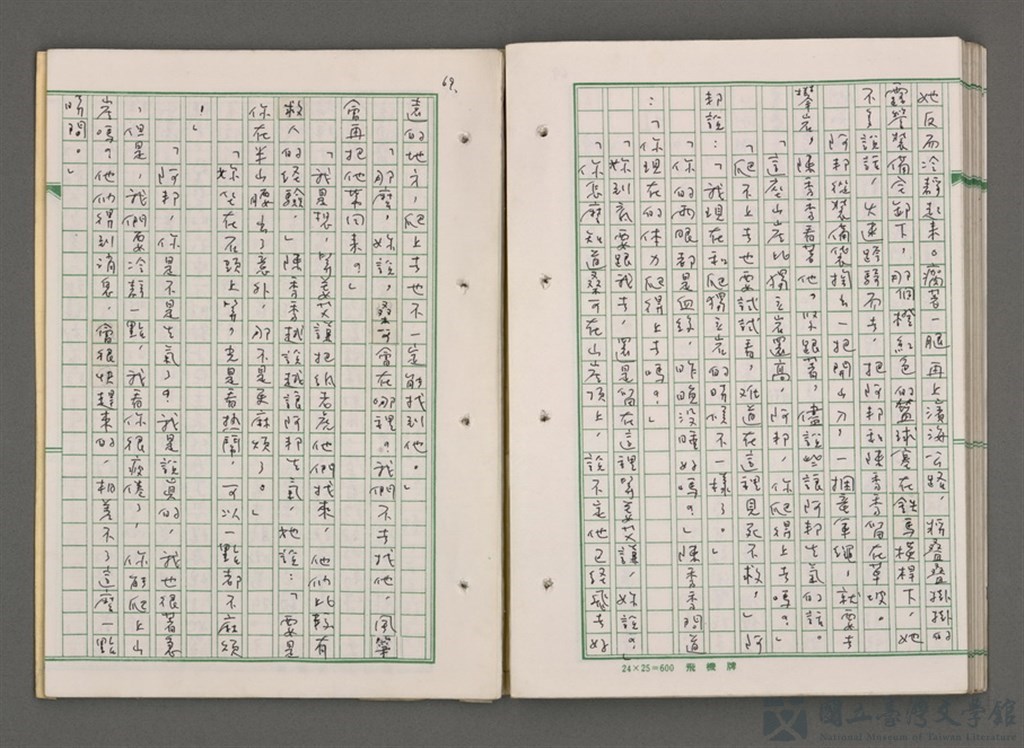 她反而冷靜起來。瘸著一腿再上濱海公路,將疊疊掛掛的
露營裝備全卸下,那個橙紅色的籃球塞在鐵馬橫桿下,她
不多說話,火速跨騎而去,把阿邦和陳秀香留在草坡。
阿邦從裝備袋掏出一把開山刀,一捆童軍繩,就要去
攀岩,陳秀香看著他,緊跟著,儘說些讓阿邦生氣的話。
「這座山崖比獨立岩還高,阿邦,你爬得上去嗎?」
「爬不上去也要試試看,難道在這裡見死不救,」阿
邦說:「我現在和爬獨立岩的時候不一樣了。」
「你的兩眼都是血絲,昨晚沒睡好嗎?」陳秀香問道
:「你現在的体力爬得上去嗎?」
「妳到底要跟我去,還是留在這裡等姜艾謹,妳說?」
「你怎麼知道桑可在山崖頂上,說不定他已經飛去好
24×25=600 飛機牌
69、
遠的地方,爬上去也不一定能找到他。」
「那麼,妳說,桑可會在哪裡?我們不去找他,風箏
會再把他帶回來?」
「我是想,等姜艾謹把紙老虎他們找來,他們比較有
救人的經驗,」陳秀香越說越讓阿邦生氣,她說:「要是
你在半山腰出了意外,那不是更麻煩了。」
「妳坐在石頭上等,光是看熱鬧,可以一點都不麻煩
!」
「阿邦,你是不是生氣了?我是說真的,我也很著急
,但是,我們要冷靜一點,我看你很疲倦了,你能爬上山
崖嗎?他們得到消息,會很快趕來的,相差不了這麼一點
時間。」
國立臺灣文學館
National Museum of Taiwan Literature